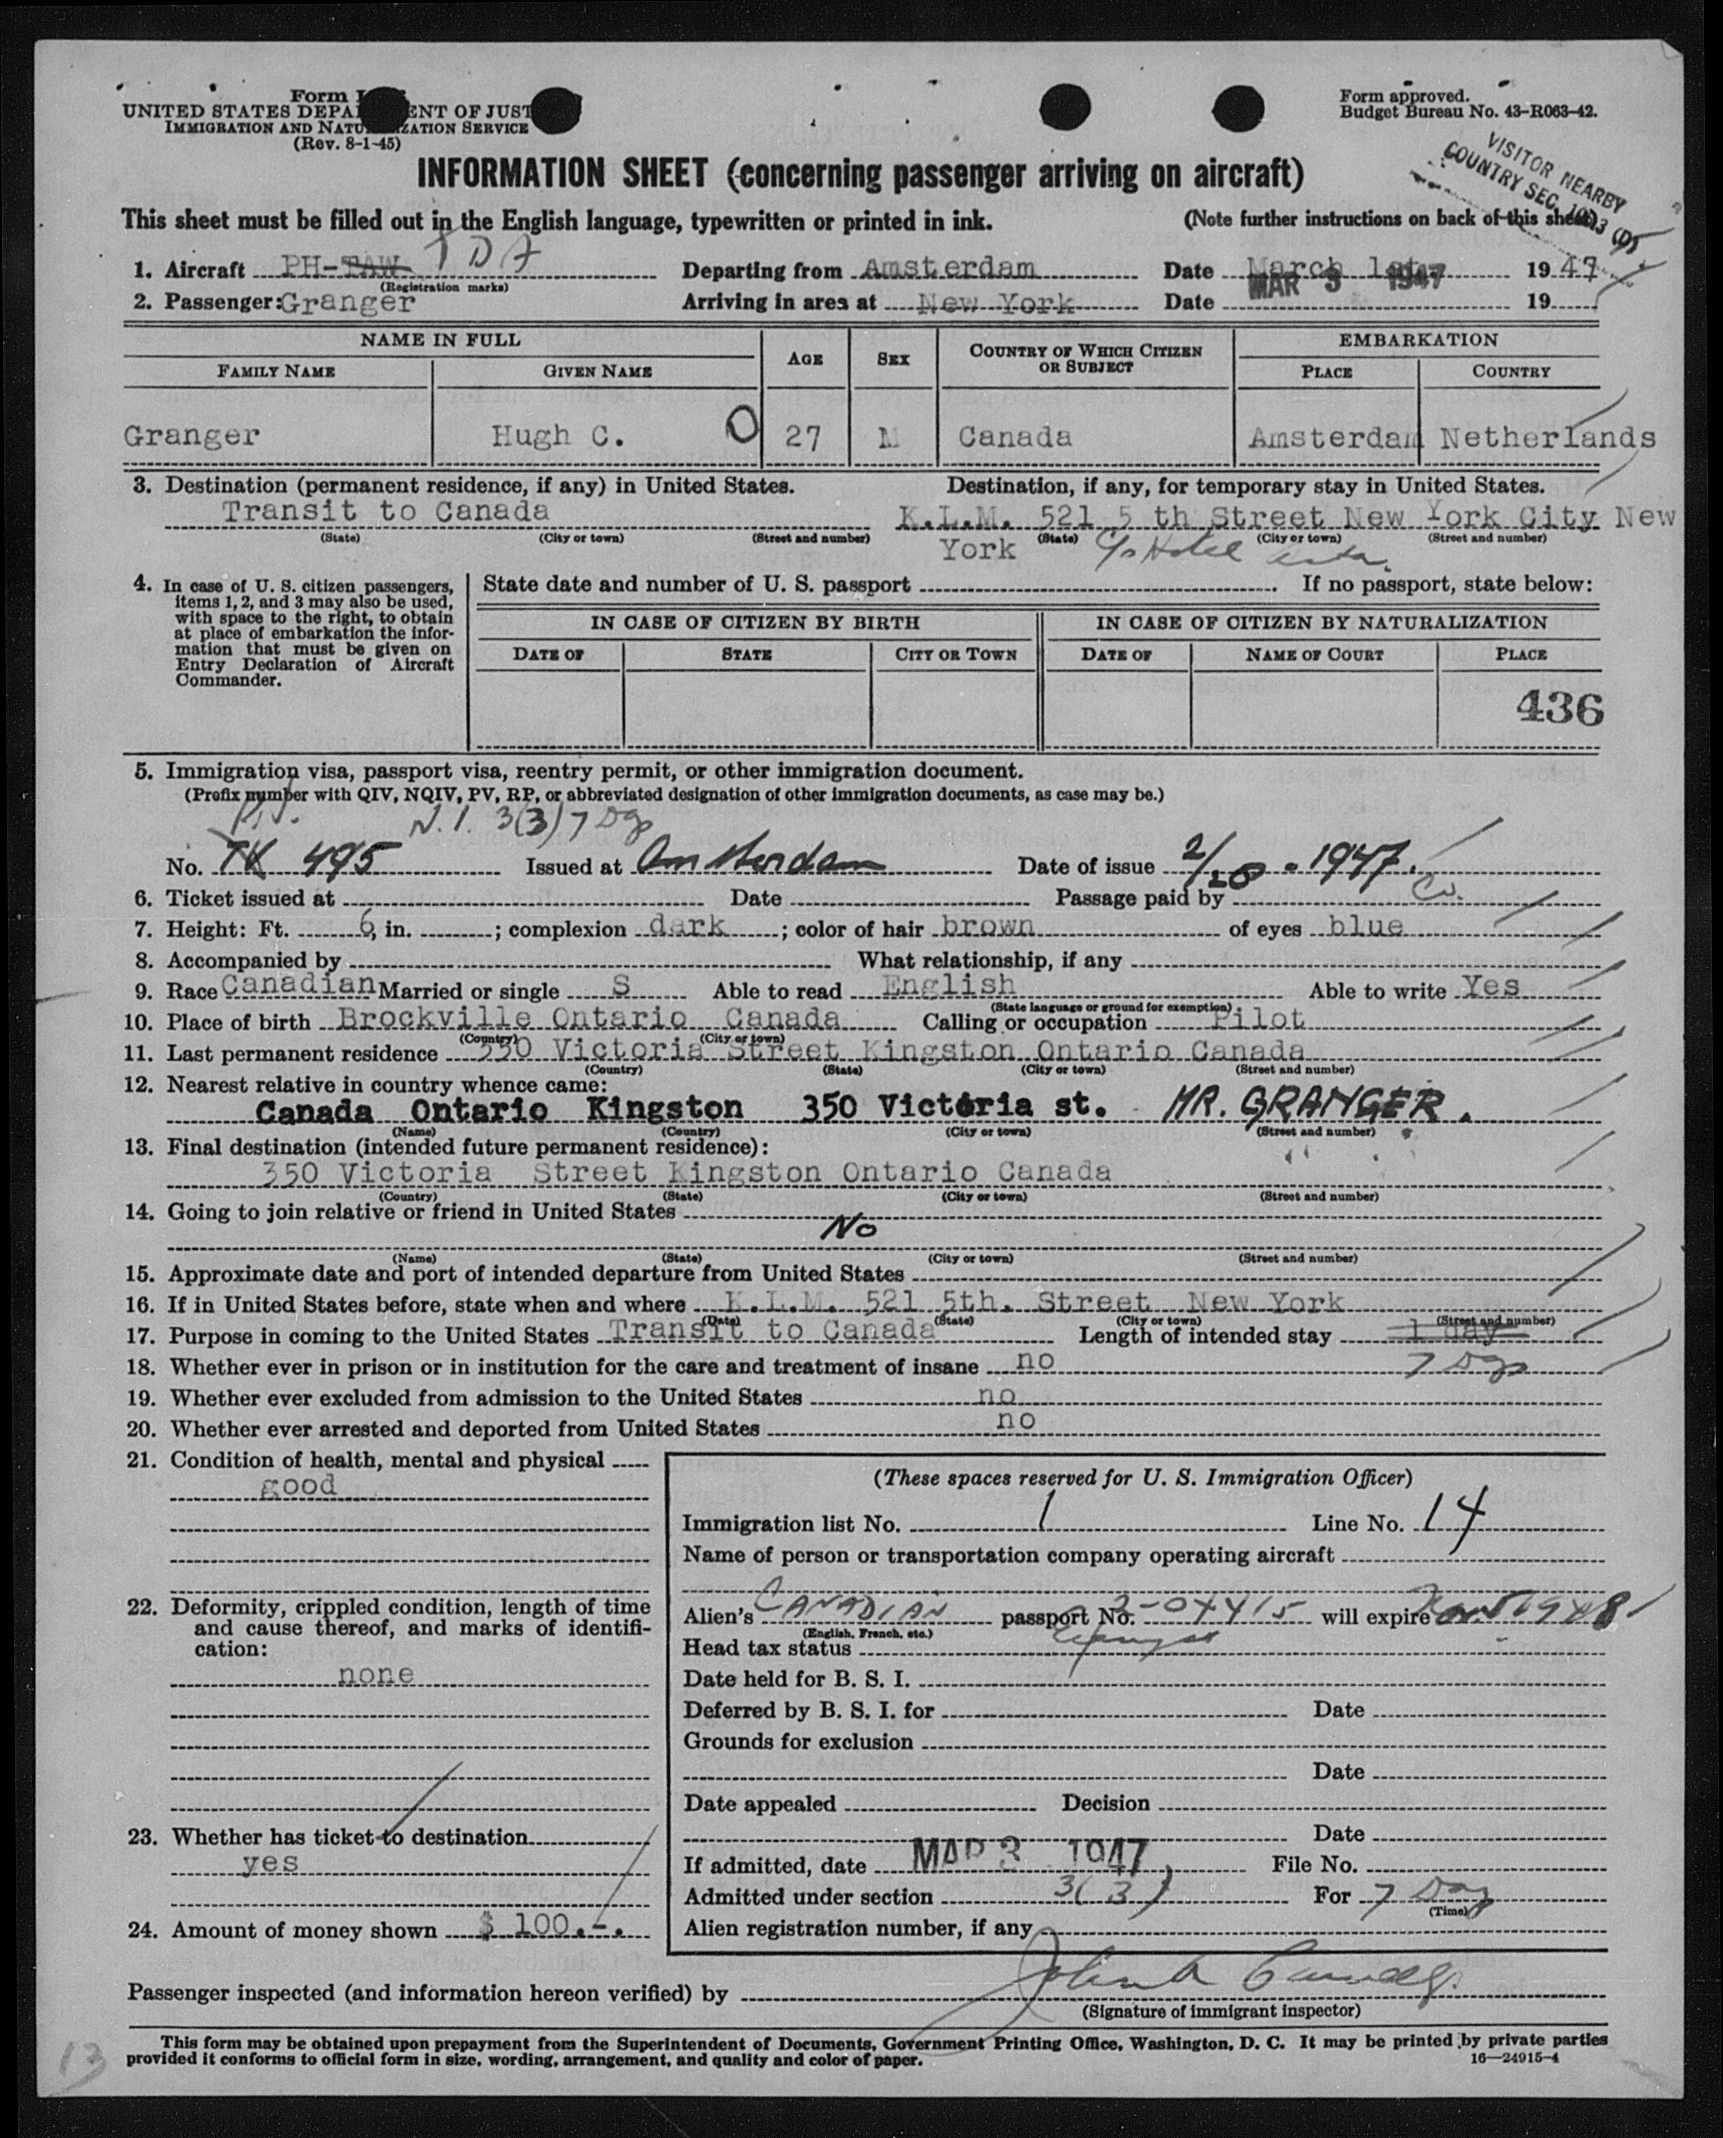 Form
UNITED STATES DEPA ENT OF JUST
IMMIGRATION AND NATU IZATION SERVICE
(Rev. 8-1-45)
Form approved.
Budget Bureau No. 43-R063-42.
VISITOR NEARBY
COUNTRY SEC.
INFORMATION SHEET (concerning passenger arriving on aircraft)
This sheet must be filled out in the English language, typewritten or printed in ink. (Note further instructions on back of this sheet)
1. Aircraft PH-TAW TDA Departing from Amsterdam Date March 1st 1947
(Registration marks) MAR 3 1947
2. Passenger: Granger Arriving in area at New York Date 19
NAME IN FULL AGE SEX COUNTRY OF WHICH CITIZEN OR SUBJECT EMBARKATION
FAMILY NAME GIVEN NAME PLACE COUNTRY
Granger Hugh C. O 27 M Canada Amsterdam Netherlands
3. Destination (permanent residence, if any) in United States. Destination, if any, for temporary stay in United States.
Transit to Canada K.L.M. 521 5 th Street New York City New
(State) (City or town) (Street and number) (State) (City or town) (Street and number)
York c/o Hotel
4. In case of U. S. citizen passengers, items 1, 2, and 3 may also be used, with space to the right, to obtain at place of embarkation the information that must be given on Entry Declaration of Aircraft Commander.
State date and number of U. S. passport . If no passport, state below:
IN CASE OF CITIZEN BY BIRTH IN CASE OF CITIZEN BY NATURALIZATION
DATE OF STATE CITY OR TOWN DATE OF NAME OF COURT PLACE
436
5. Immigration visa, passport visa, reentry permit, or other immigration document.
(Prefix number with QIV, NQIV, PV, RP, or abbreviated designation of other immigration documents, as case may be.)
P.V. N.I. 3(3) 7 Dys
No. TK 495 Issued at Amsterdam Date of issue 2/28-1947.
6. Ticket issued at Date Passage paid by Co.
7. Height: Ft. 6, in. ; complexion dark ; color of hair brown of eyes blue
8. Accompanied by What relationship, if any
9. Race Canadian Married or single S Able to read English Able to write Yes
(State language or ground for exemption)
10. Place of birth Brockville Ontario Canada Calling or occupation Pilot
(Country) (City or town)
11. Last permanent residence 350 Victoria Street Kingston Ontario Canada
(Country) (State) (City or town) (Street and number)
12. Nearest relative in country whence came:
Canada Ontario Kingston 350 Victoria st. MR. GRANGER.
(Name) (Country) (City or town) (Street and number)
13. Final destination (intended future permanent residence):
350 Victoria Street Kingston Ontario Canada
(Country) (State) (City or town) (Street and number)
14. Going to join relative or friend in United States
No
(Name) (State) (City or town) (Street and number)
15. Approximate date and port of intended departure from United States
16. If in United States before, state when and where K.L.M. 521 5th. Street New York
(Date) (State) (City or town) (Street and number)
17. Purpose in coming to the United States Transit to Canada Length of intended stay 1 day
18. Whether ever in prison or in institution for the care and treatment of insane no 7 Dys
19. Whether ever excluded from admission to the United States no
20. Whether ever arrested and deported from United States no
21. Condition of health, mental and physical
good
22. Deformity, crippled condition, length of time and cause thereof, and marks of identification:
none
23. Whether has ticket to destination
yes
24. Amount of money shown $ 100.-.
(These spaces reserved for U. S. Immigration Officer)
Immigration list No. 1 Line No. 14
Name of person or transportation company operating aircraft
Alien's CANADIAN passport No. 2-04415 will expire 1948
(English, French, etc.)
Head tax status
Date held for B. S. I.
Deferred by B. S. I. for Date
Grounds for exclusion
Date
Date appealed Decision
Date
If admitted, date MAR 3 1947 File No.
Admitted under section 3(3) For 7 Days
(Time)
Alien registration number, if any
Passenger inspected (and information hereon verified) by
(Signature of immigrant inspector)
This form may be obtained upon prepayment from the Superintendent of Documents, Government Printing Office, Washington, D. C. It may be printed by private parties
provided it conforms to official form in size, wording, arrangement, and quality and color of paper. 16—24915-4
13